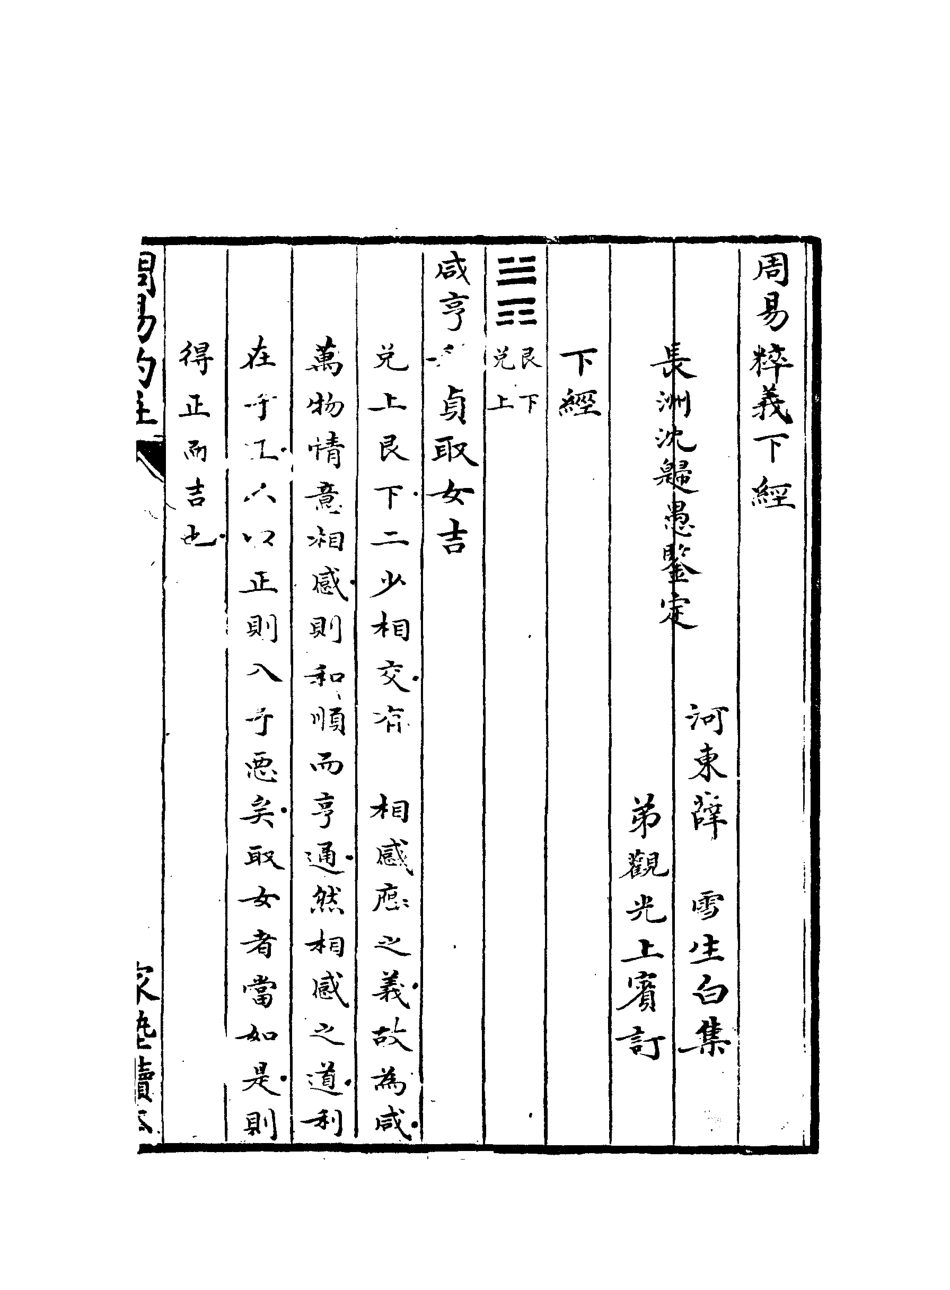 周易粹義下經
河東薛　雪生白集
長洲沈歸愚鑒定
弟觀光上賓訂
下經
䷞
艮下
兌上
咸亨利貞取女吉
兌上艮下二少相交有　相感應之義故為咸
萬物情意相感則和順而亨通然相感之道利
在于正不以正則入于惡矣取女者當如是則
得正而吉也
周易
家塾讀本